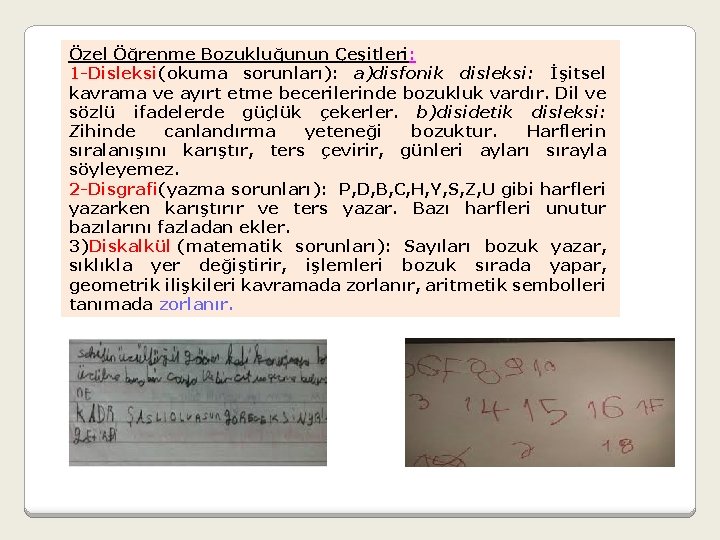 Özel Öğrenme Bozukluğunun Çeşitleri:
1-Disleksi(okuma sorunları): a)disfonik disleksi: İşitsel
kavrama ve ayırt etme becerilerinde bozukluk vardır. Dil ve
sözlü ifadelerde güçlük çekerler. b)disidetik disleksi:
Zihinde canlandırma yeteneği bozuktur. Harflerin
sıralanışını karıştır, ters çevirir, günleri ayları sırayla
söyleyemez.
2-Disgrafi(yazma sorunları): P,D,B,C,H,Y,S,Z,U gibi harfleri
yazarken karıştırır ve ters yazar. Bazı harfleri unutur
bazılarını fazladan ekler.
3)Diskalkül (matematik sorunları): Sayıları bozuk yazar,
sıklıkla yer değiştirir, işlemleri bozuk sırada yapar,
geometrik ilişkileri kavramada zorlanır, aritmetik sembolleri
tanımada zorlanır.
KADR
3 14 15 16
2 18